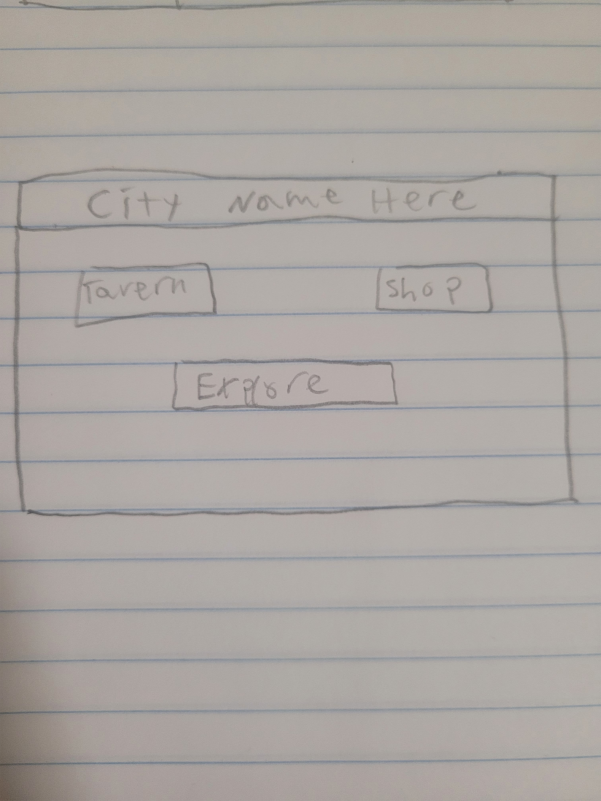 City Name Here
Tavern
Shop
Explore